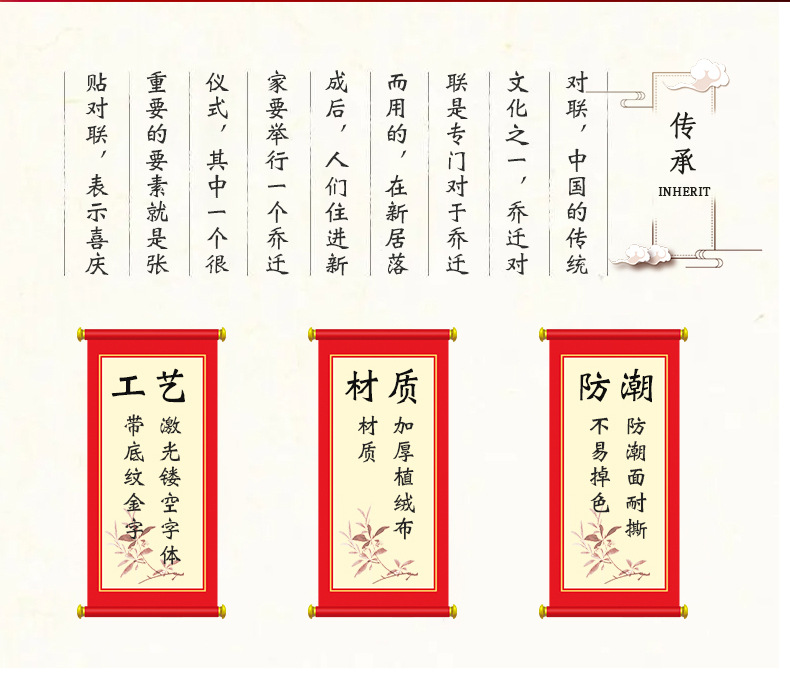 传承
INHERIT
对联，中国的传统
文化之一，乔迁对
联是专门对于乔迁
而用的，在新居落
成后，人们住进新
家要举行一个乔迁
仪式，其中一个很
重要的要素就是张
贴对联，表示喜庆
工艺
激光镂空字体
带底纹金字
材质
加厚植绒布
材质
防潮
防潮面耐撕
不易掉色